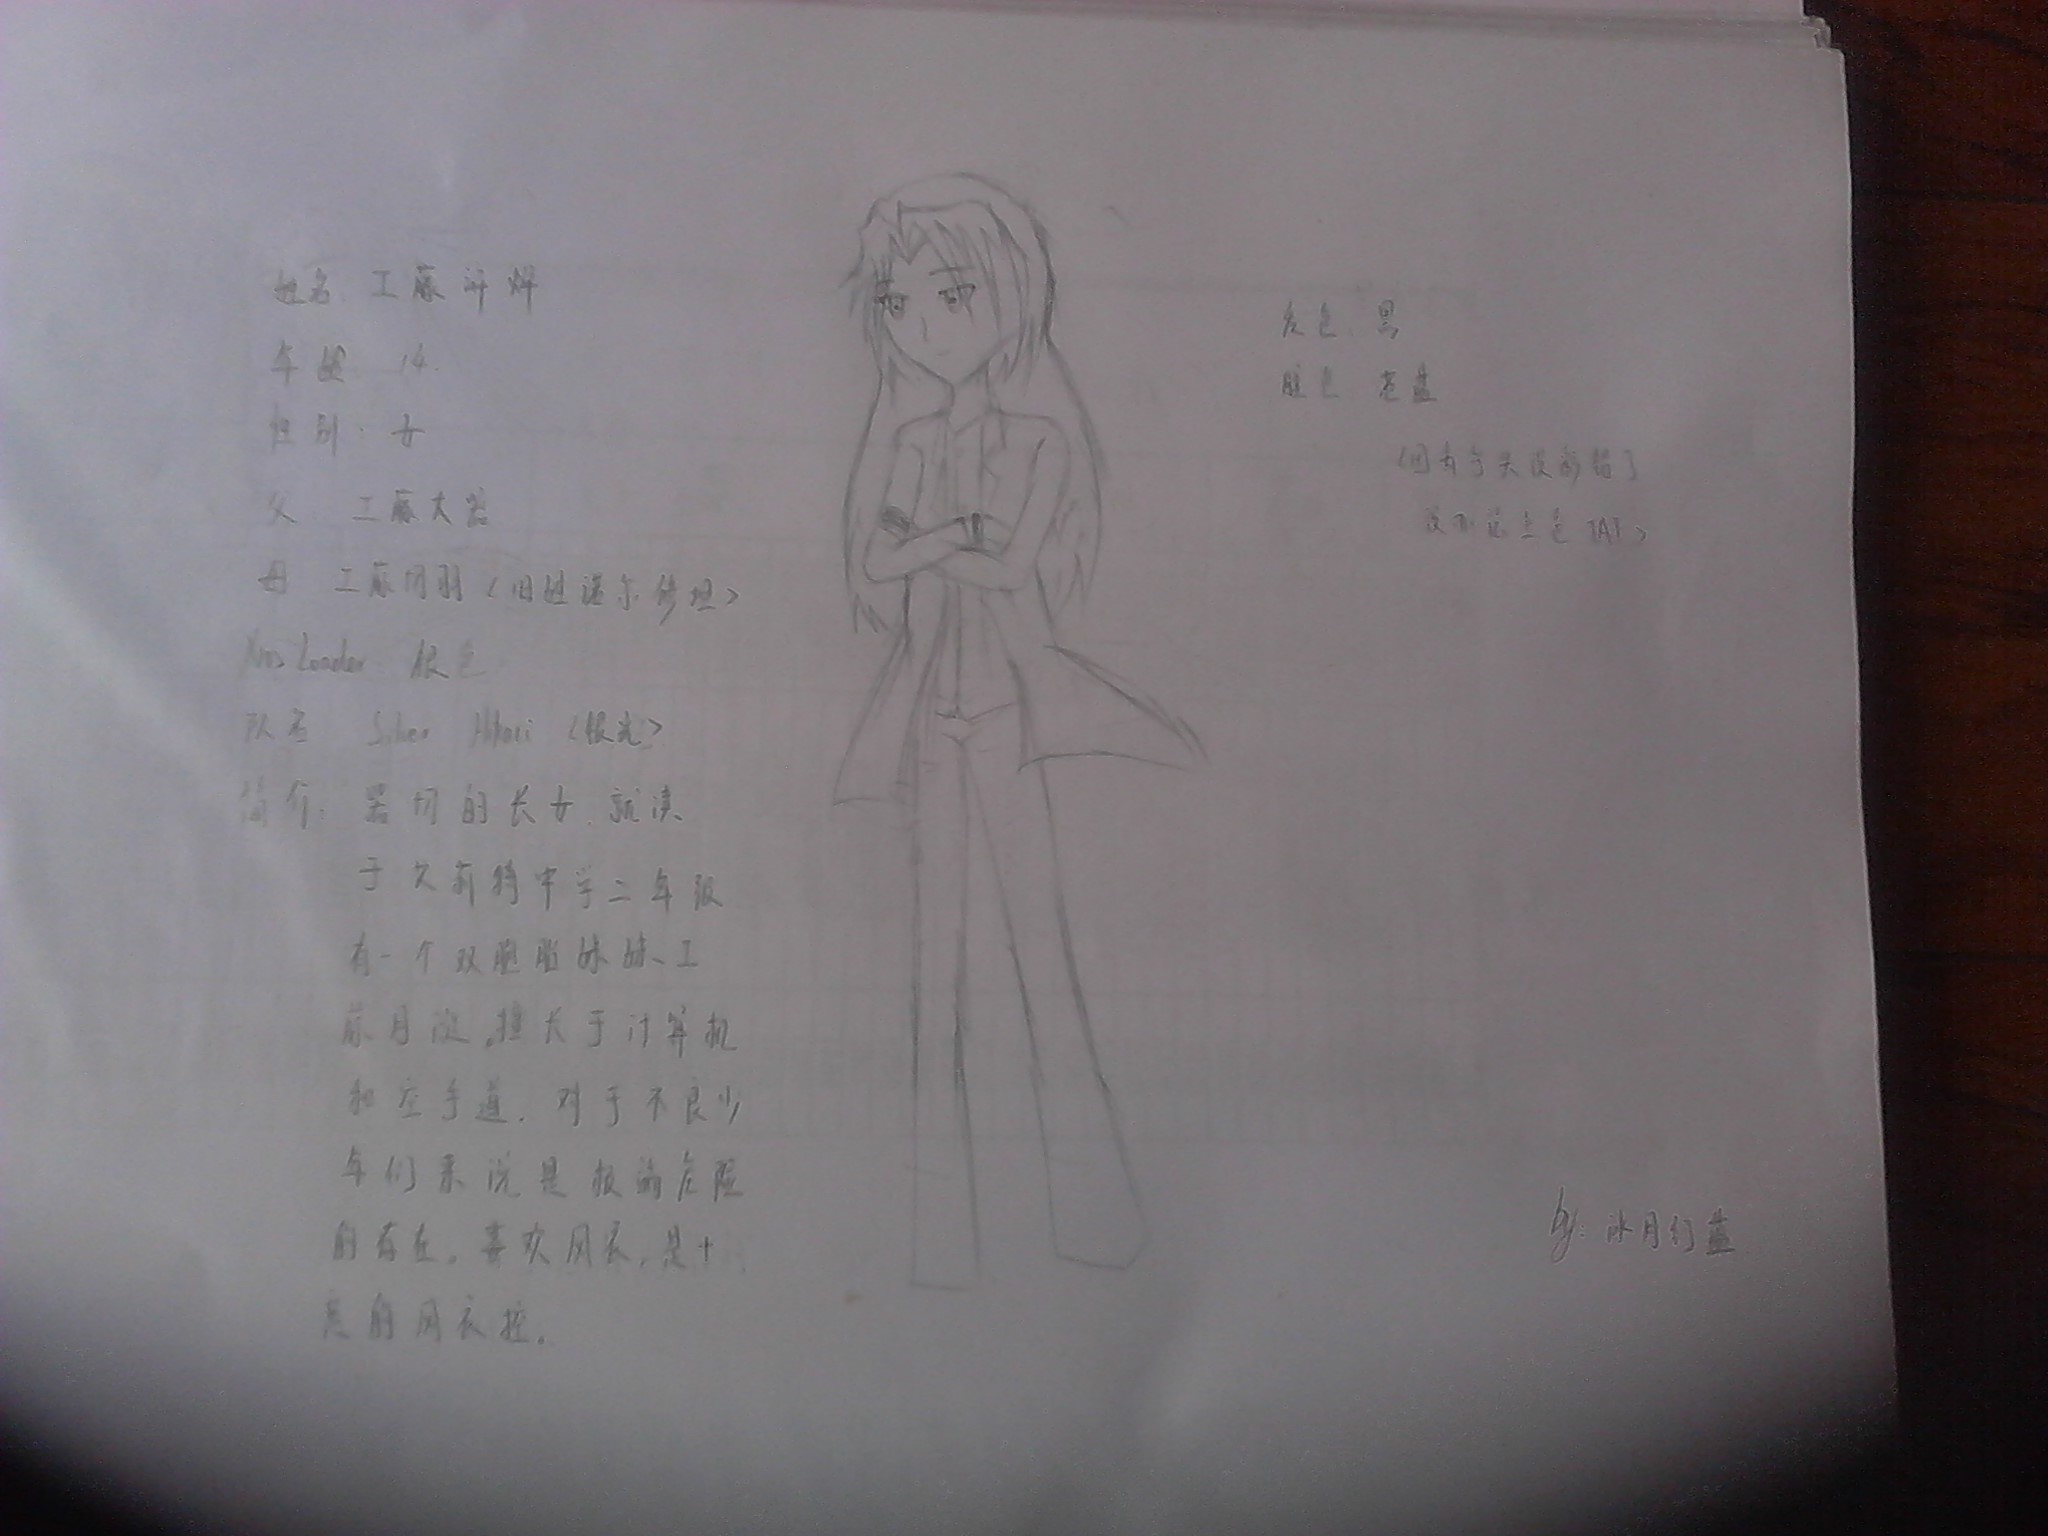 姓名：工藤
年龄：14.
性别：女
父：工藤大器
母：工藤切羽（旧姓诺尔修坦）
Xros Loader：银色
队名：Silver Hikari（银光）
简介：器切的长女，就读
于 中学二年级
有一个双胞胎妹妹、工
藤月 。擅长于计算机
和空手道，对于不良少
年们来说是极端危险
的存在。喜欢风衣，是十
足的风衣控。
发色：黑
瞳色：苍蓝
没办法上色TAT）
by：冰月幻蓝